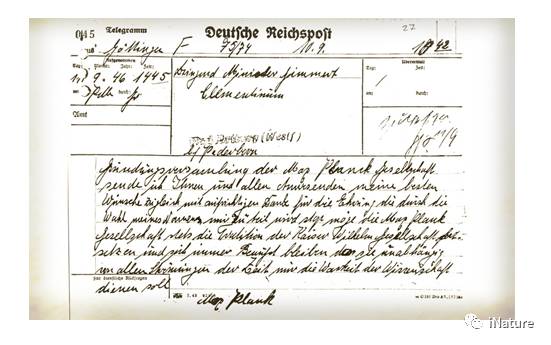 27
0115 Telegramm Deutsche Reichspost
aus Göttingen F 75/74 10.9. 1842
Aufgenommen
Tag: Monat: Jahr: Zeit:
9.46 1445
durch:
Amt
Dringend Minister Zimmert
Clementinum
Übermittelt
Tag: Zeit:
an: durch:
(Westf)
b/Paderborn
Gründungsversamblung der Max Planck Gesellschaft
sende ich Ihnen und allen Anwesenden meine besten
Wünsche zugleich mit aufrichtigem Danke für die Ehrung die durch die
Wahl meines Namens mir zuteil wird stop möge die Max Plank
Gesellschaft stets die Tradition der Kaiser Wilhelm Gesellschaft fort
setzen und sich immer bewusst bleiben das sie unabhängig
von allen Strömungen der Zeit nur die Warheit der Wissenschaft
dienen soll
Für dienstliche Rückfragen
Max Plank
iNature